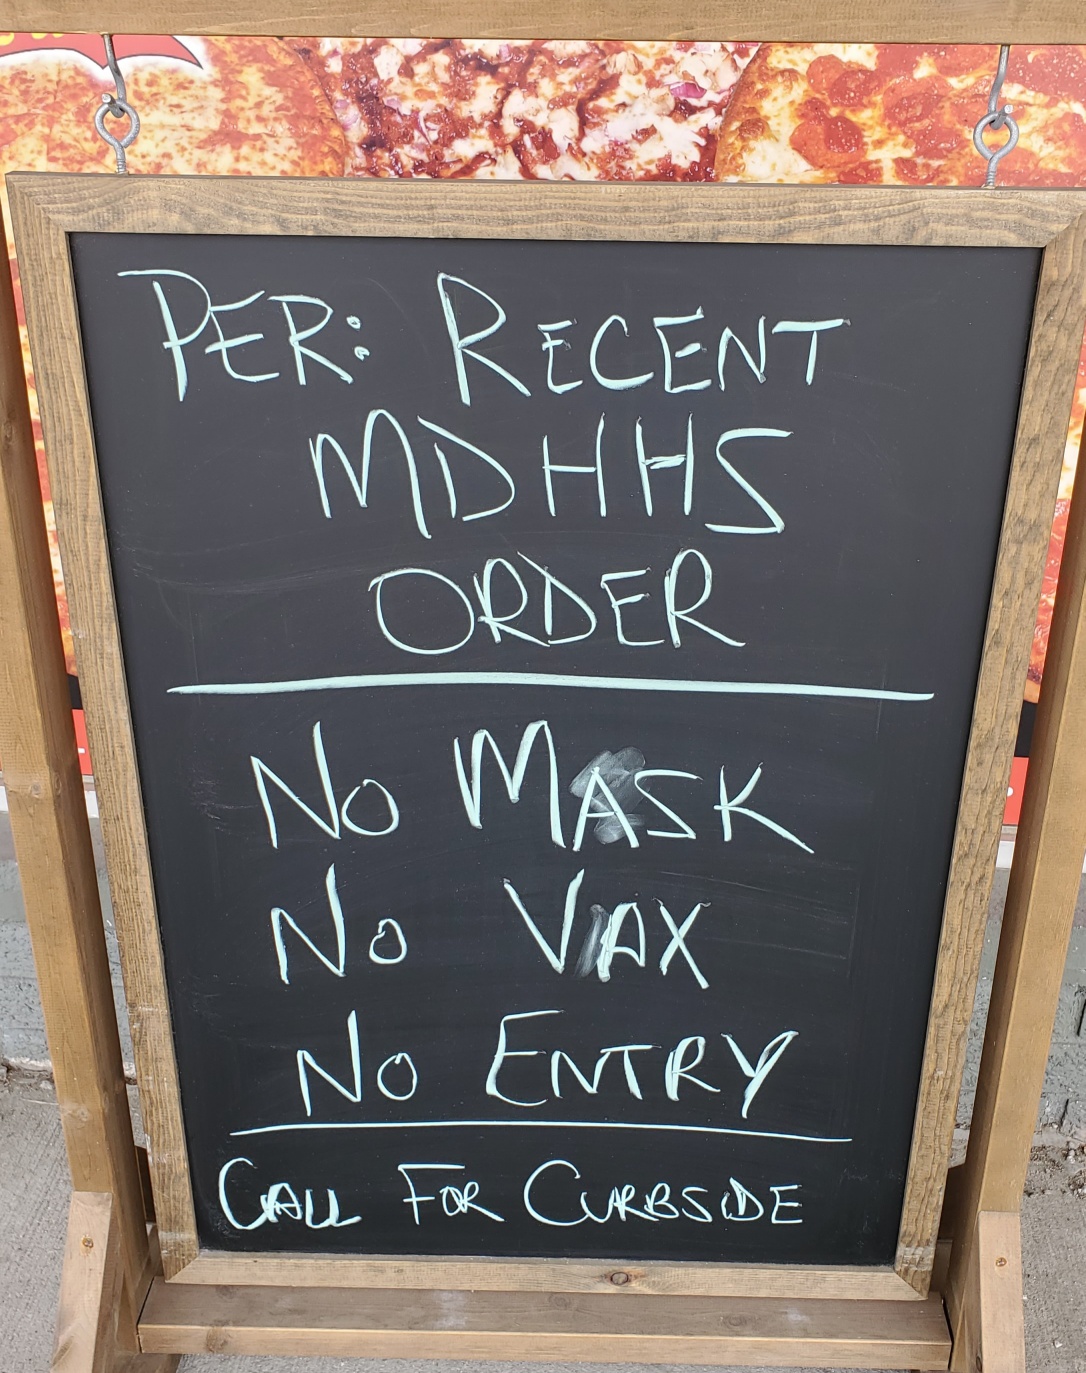 PER: RECENT
MDHHS
ORDER
NO MASK
NO VAX
NO ENTRY
CALL FOR CURBSIDE